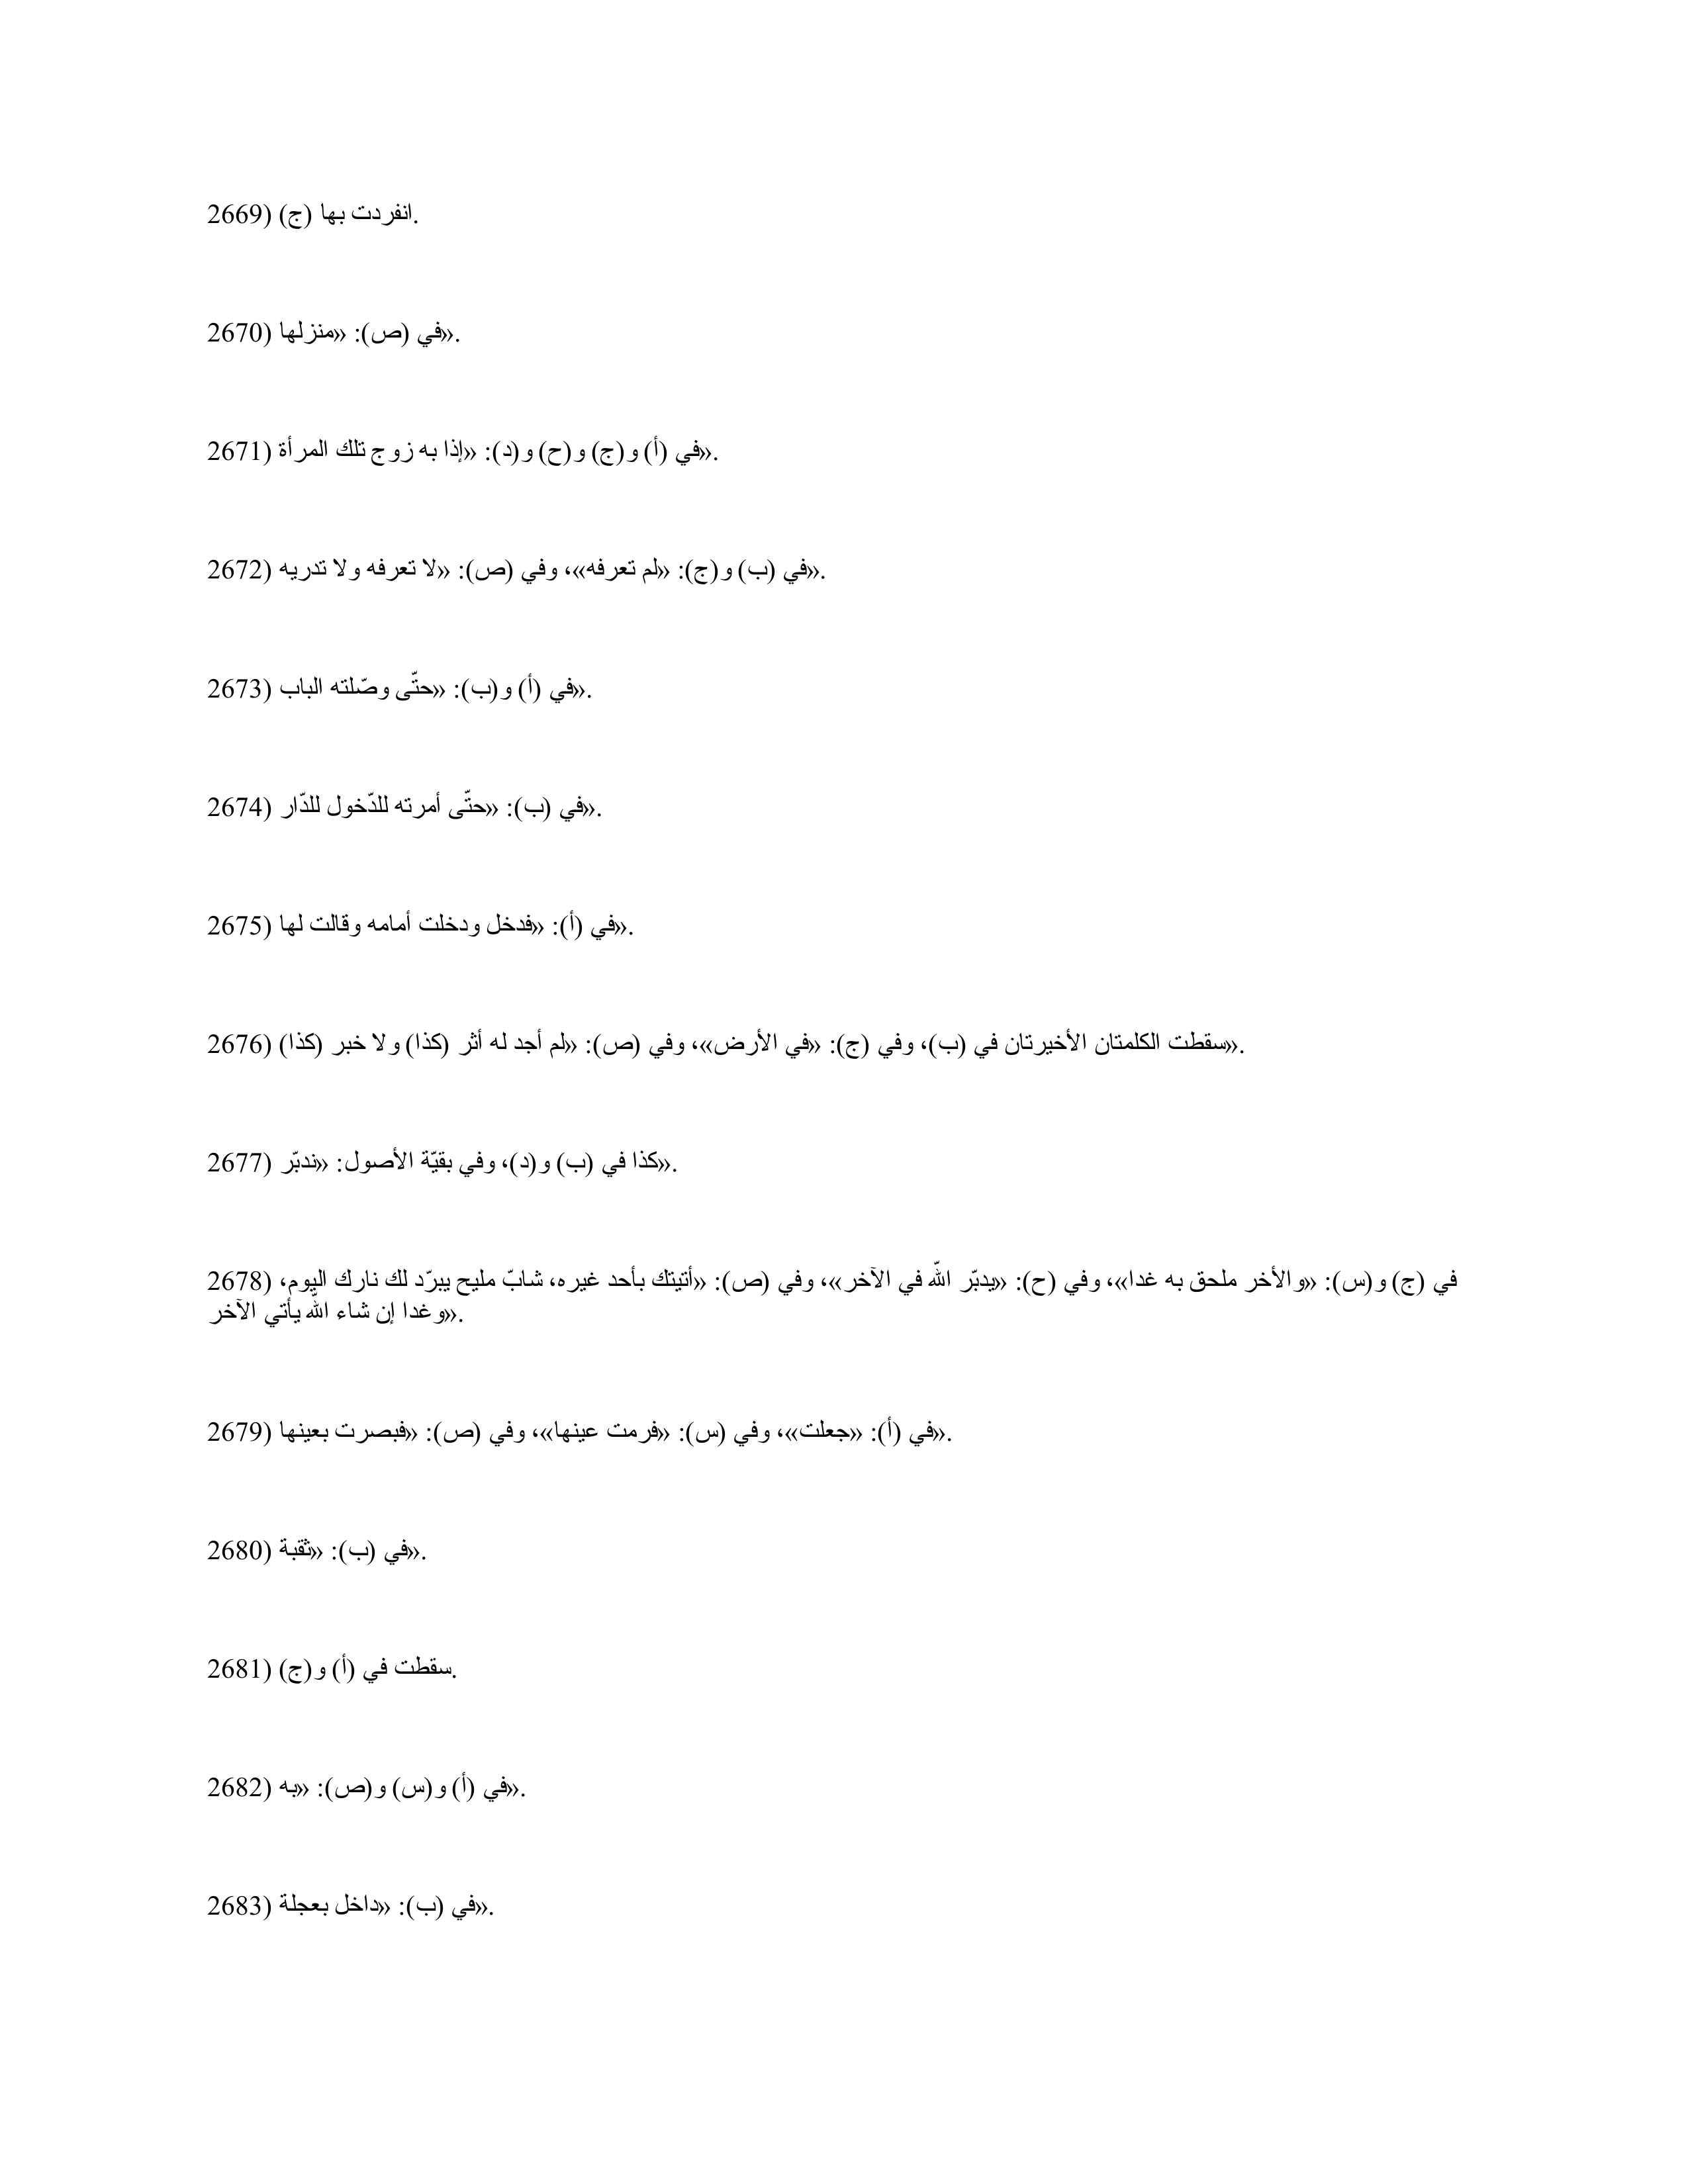 2669) انفردت بها (ج).
2670) في (ص): «منزلها».
2671) في (أ) و(ج) و(ح) و(د): «إذا به زوج تلك المرأة».
2672) في (ب) و(ج): «لم تعرفه»، وفي (ص): «لا تعرفه ولا تدريه».
2673) في (أ) و(ب): «حتّى وصّلته الباب».
2674) في (ب): «حتّى أمرته للدّخول للدّار».
2675) في (أ): «فدخل ودخلت أمامه وقالت لها».
2676) سقطت الكلمتان الأخيرتان في (ب)، وفي (ج): «في الأرض»، وفي (ص): «لم أجد له أثر (كذا) ولا خبر (كذا)».
2677) كذا في (ب) و(د)، وفي بقيّة الأصول: «ندبّر».
2678) في (ج) و(س): «والأخر ملحق به غدا»، وفي (ح): «يدبّر اللّه في الآخر»، وفي (ص): «أتيتك بأحد غيره، شابّ مليح يبرّد لك نارك اليوم،
وغدا إن شاء اللّه يأتي الآخر».
2679) في (أ): «جعلت»، وفي (س): «فرمت عينها»، وفي (ص): «فبصرت بعينها».
2680) في (ب): «ثقبة».
2681) سقطت في (أ) و(ج).
2682) في (أ) و(س) و(ص): «به».
2683) في (ب): «داخل بعجلة».